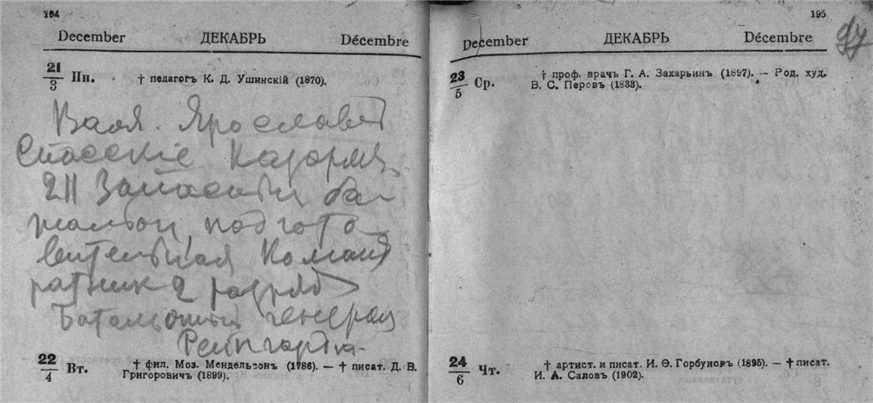 194
December ДЕКАБРЬ Décembre
21/3 Пн. † педагогъ К. Д. Ушинскій (1870).
Валя. Ярославль
Спасскіе Казармы
211 Запасный ба
тальон подгото
вительная Команд
ратник 2 разряд
Батальонный генерал
22/4 Вт. † фил. Моз. Мендельзонъ (1786). — † писат. Д. В.
Григоровичъ (1899).
195
December ДЕКАБРЬ Décembre
97
23/5 Ср. † проф. врачъ Г. А. Захарьинъ (1897). — Род. худ.
В. С. Перовъ (1833).
24/6 Чт. † артист. и писат. И. Ѳ. Горбуновъ (1895). — † писат.
И. А. Саловъ (1902).